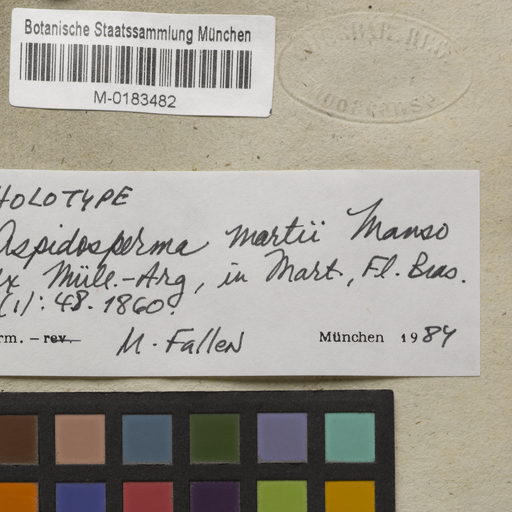 Botanische Staatssammlung München
M-0183482
HOLOTYPE
Aspidosperma martii Manso
ex Müll.-Arg, in Mart., Fl. Bras.
(1): 48. 1860.
rm. – rev.
M. Fallen
München 1984